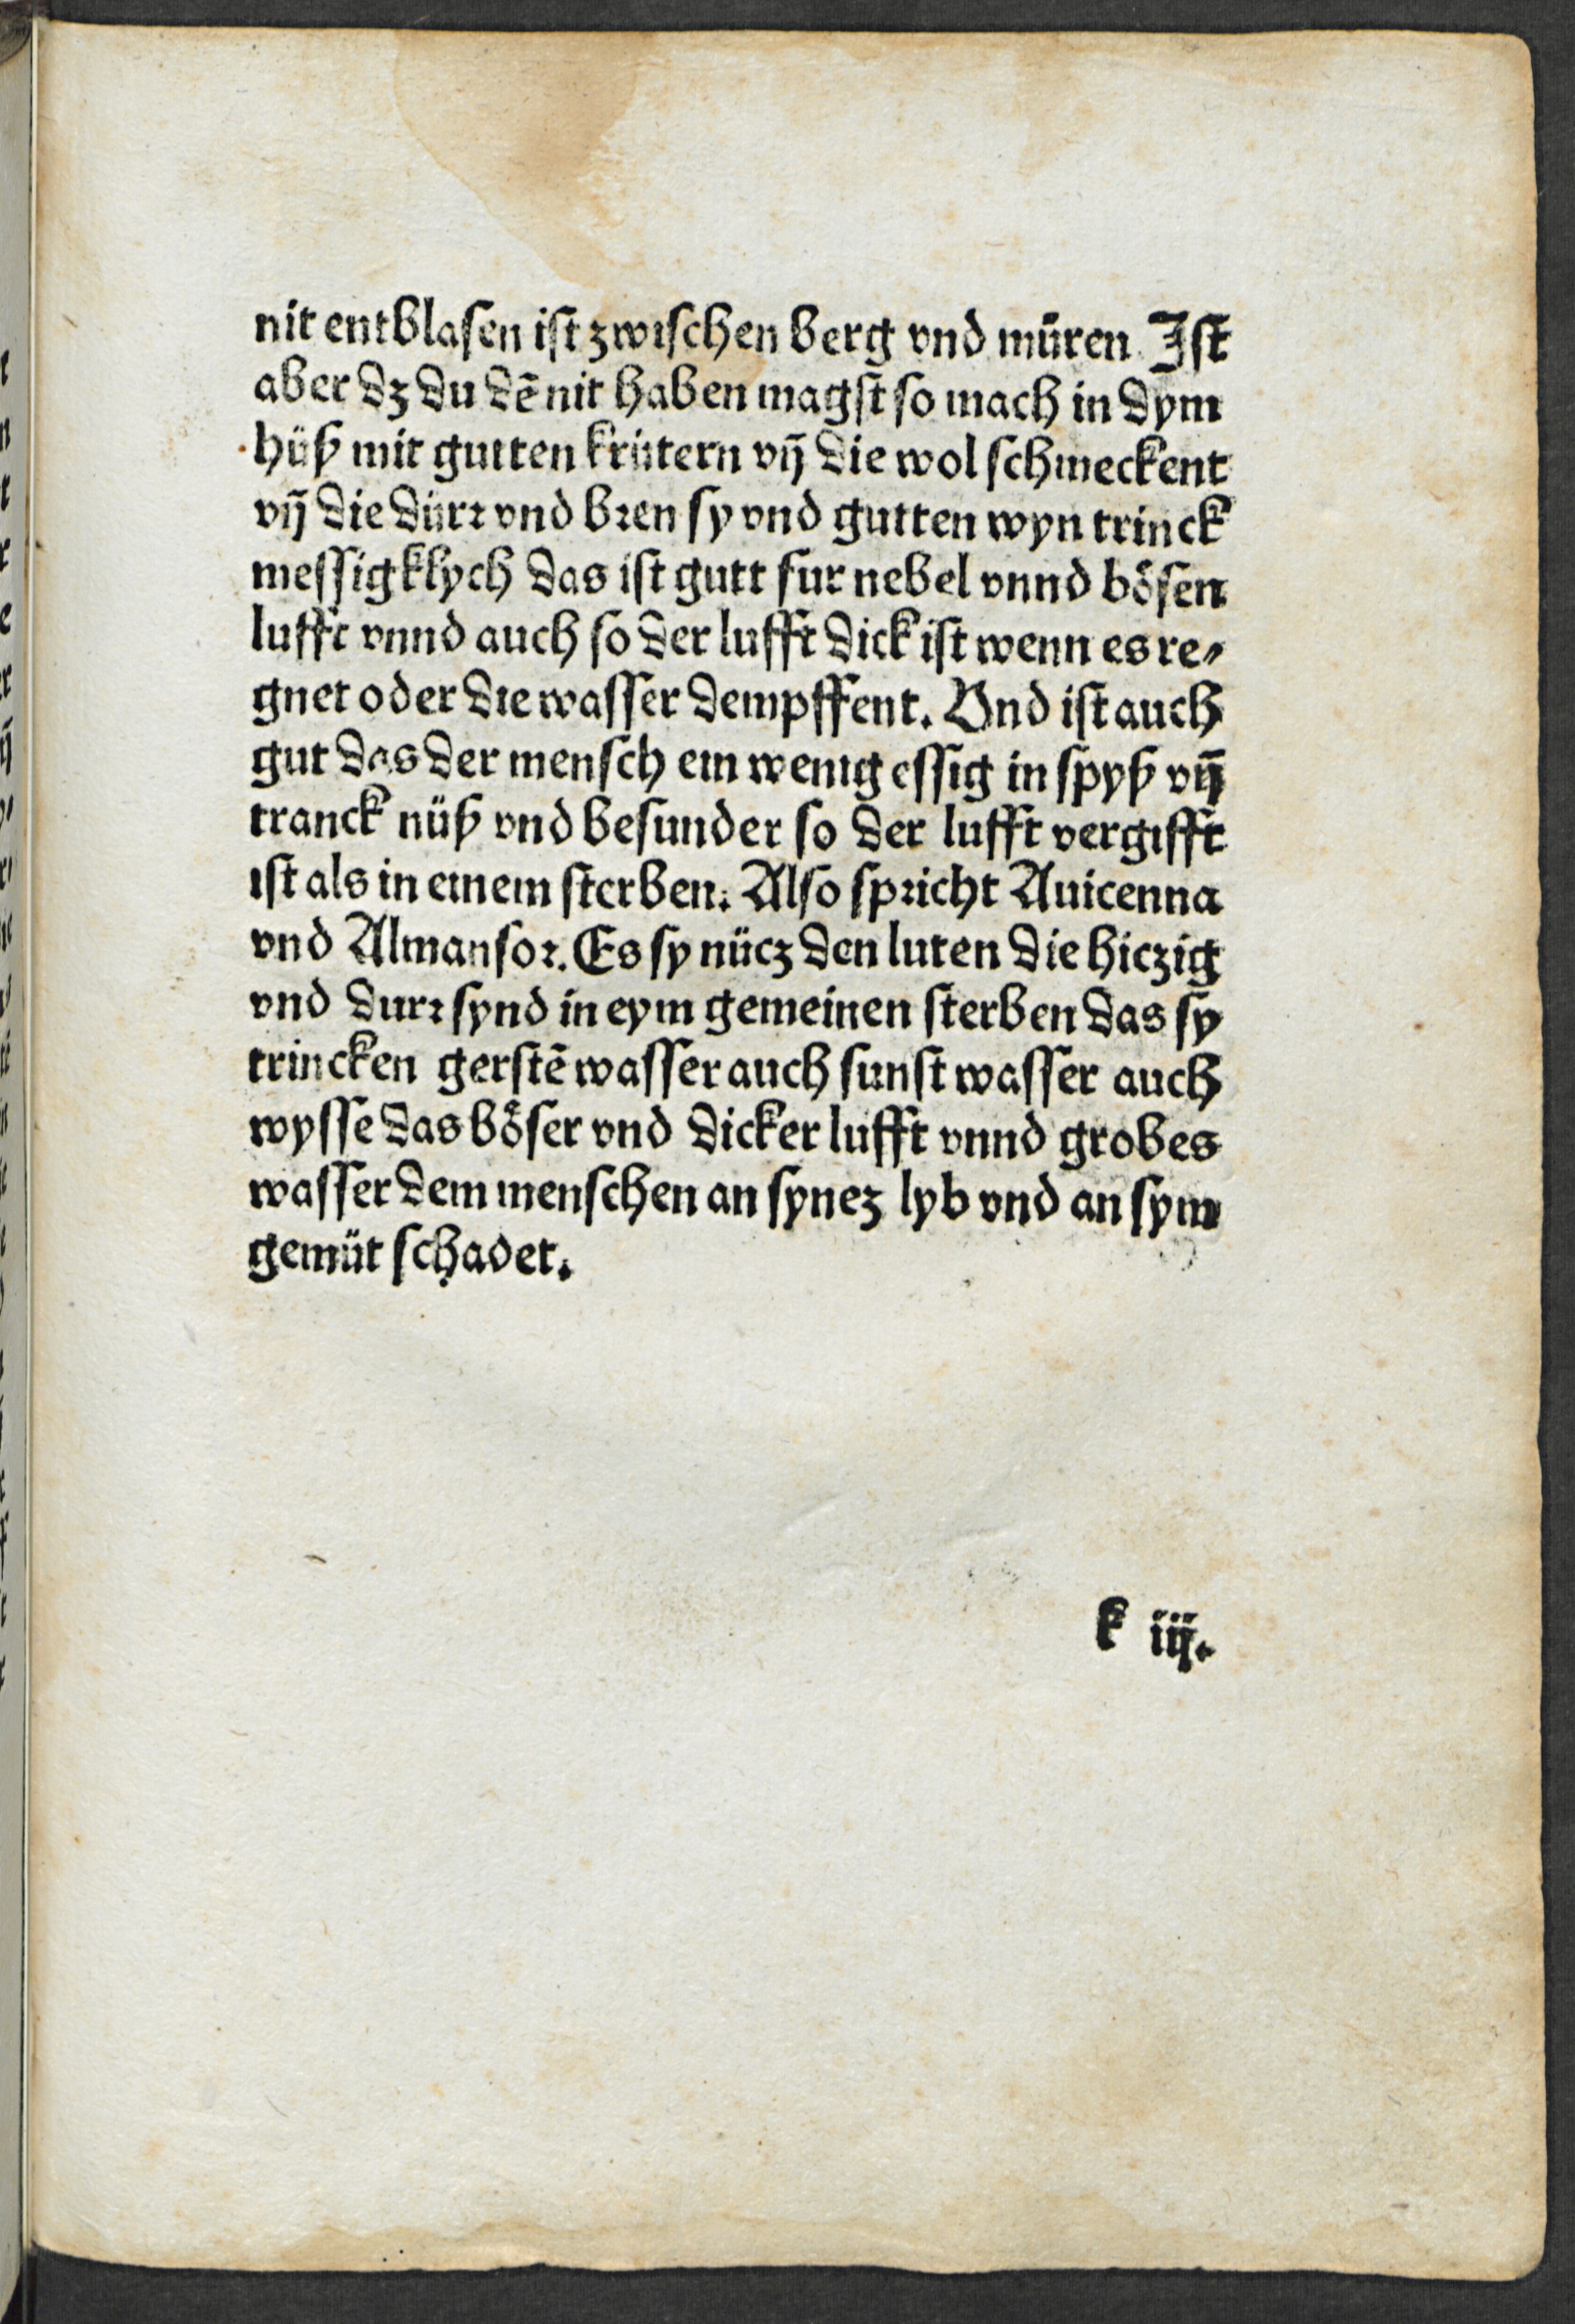 nit entblasen ist zwischen berg vnd müren. Ist
aber dz du dē nit haben magst so mach in dym
hüß mit gutten krütern vn̄ die wol schmeckent
vn̄ die dürr vnd bren sy vnd gutten wyn trinck
messigklych das ist gutt fur nebel vnnd bösen
lufft vnnd auch so der lufft dick ist wenn es re⸗
gnet oder die wasser dempffent. Vnd ist auch
gut das der mensch ein wenig essig in spyß vn̄
tranck nüß vnd besunder so der lufft vergifft
ist als in einem sterben. Also spricht Auicenna
vnd Almansor. Es sy nücz den luten die hiczig
vnd durr synd in eym gemeinen sterben das sy
trincken gerstē wasser auch sunst wasser auch
wysse das böser vnd dicker lufft vnnd grobes
wasser dem menschen an synez lyb vnd an sym
gemüt schadet.
k iij.